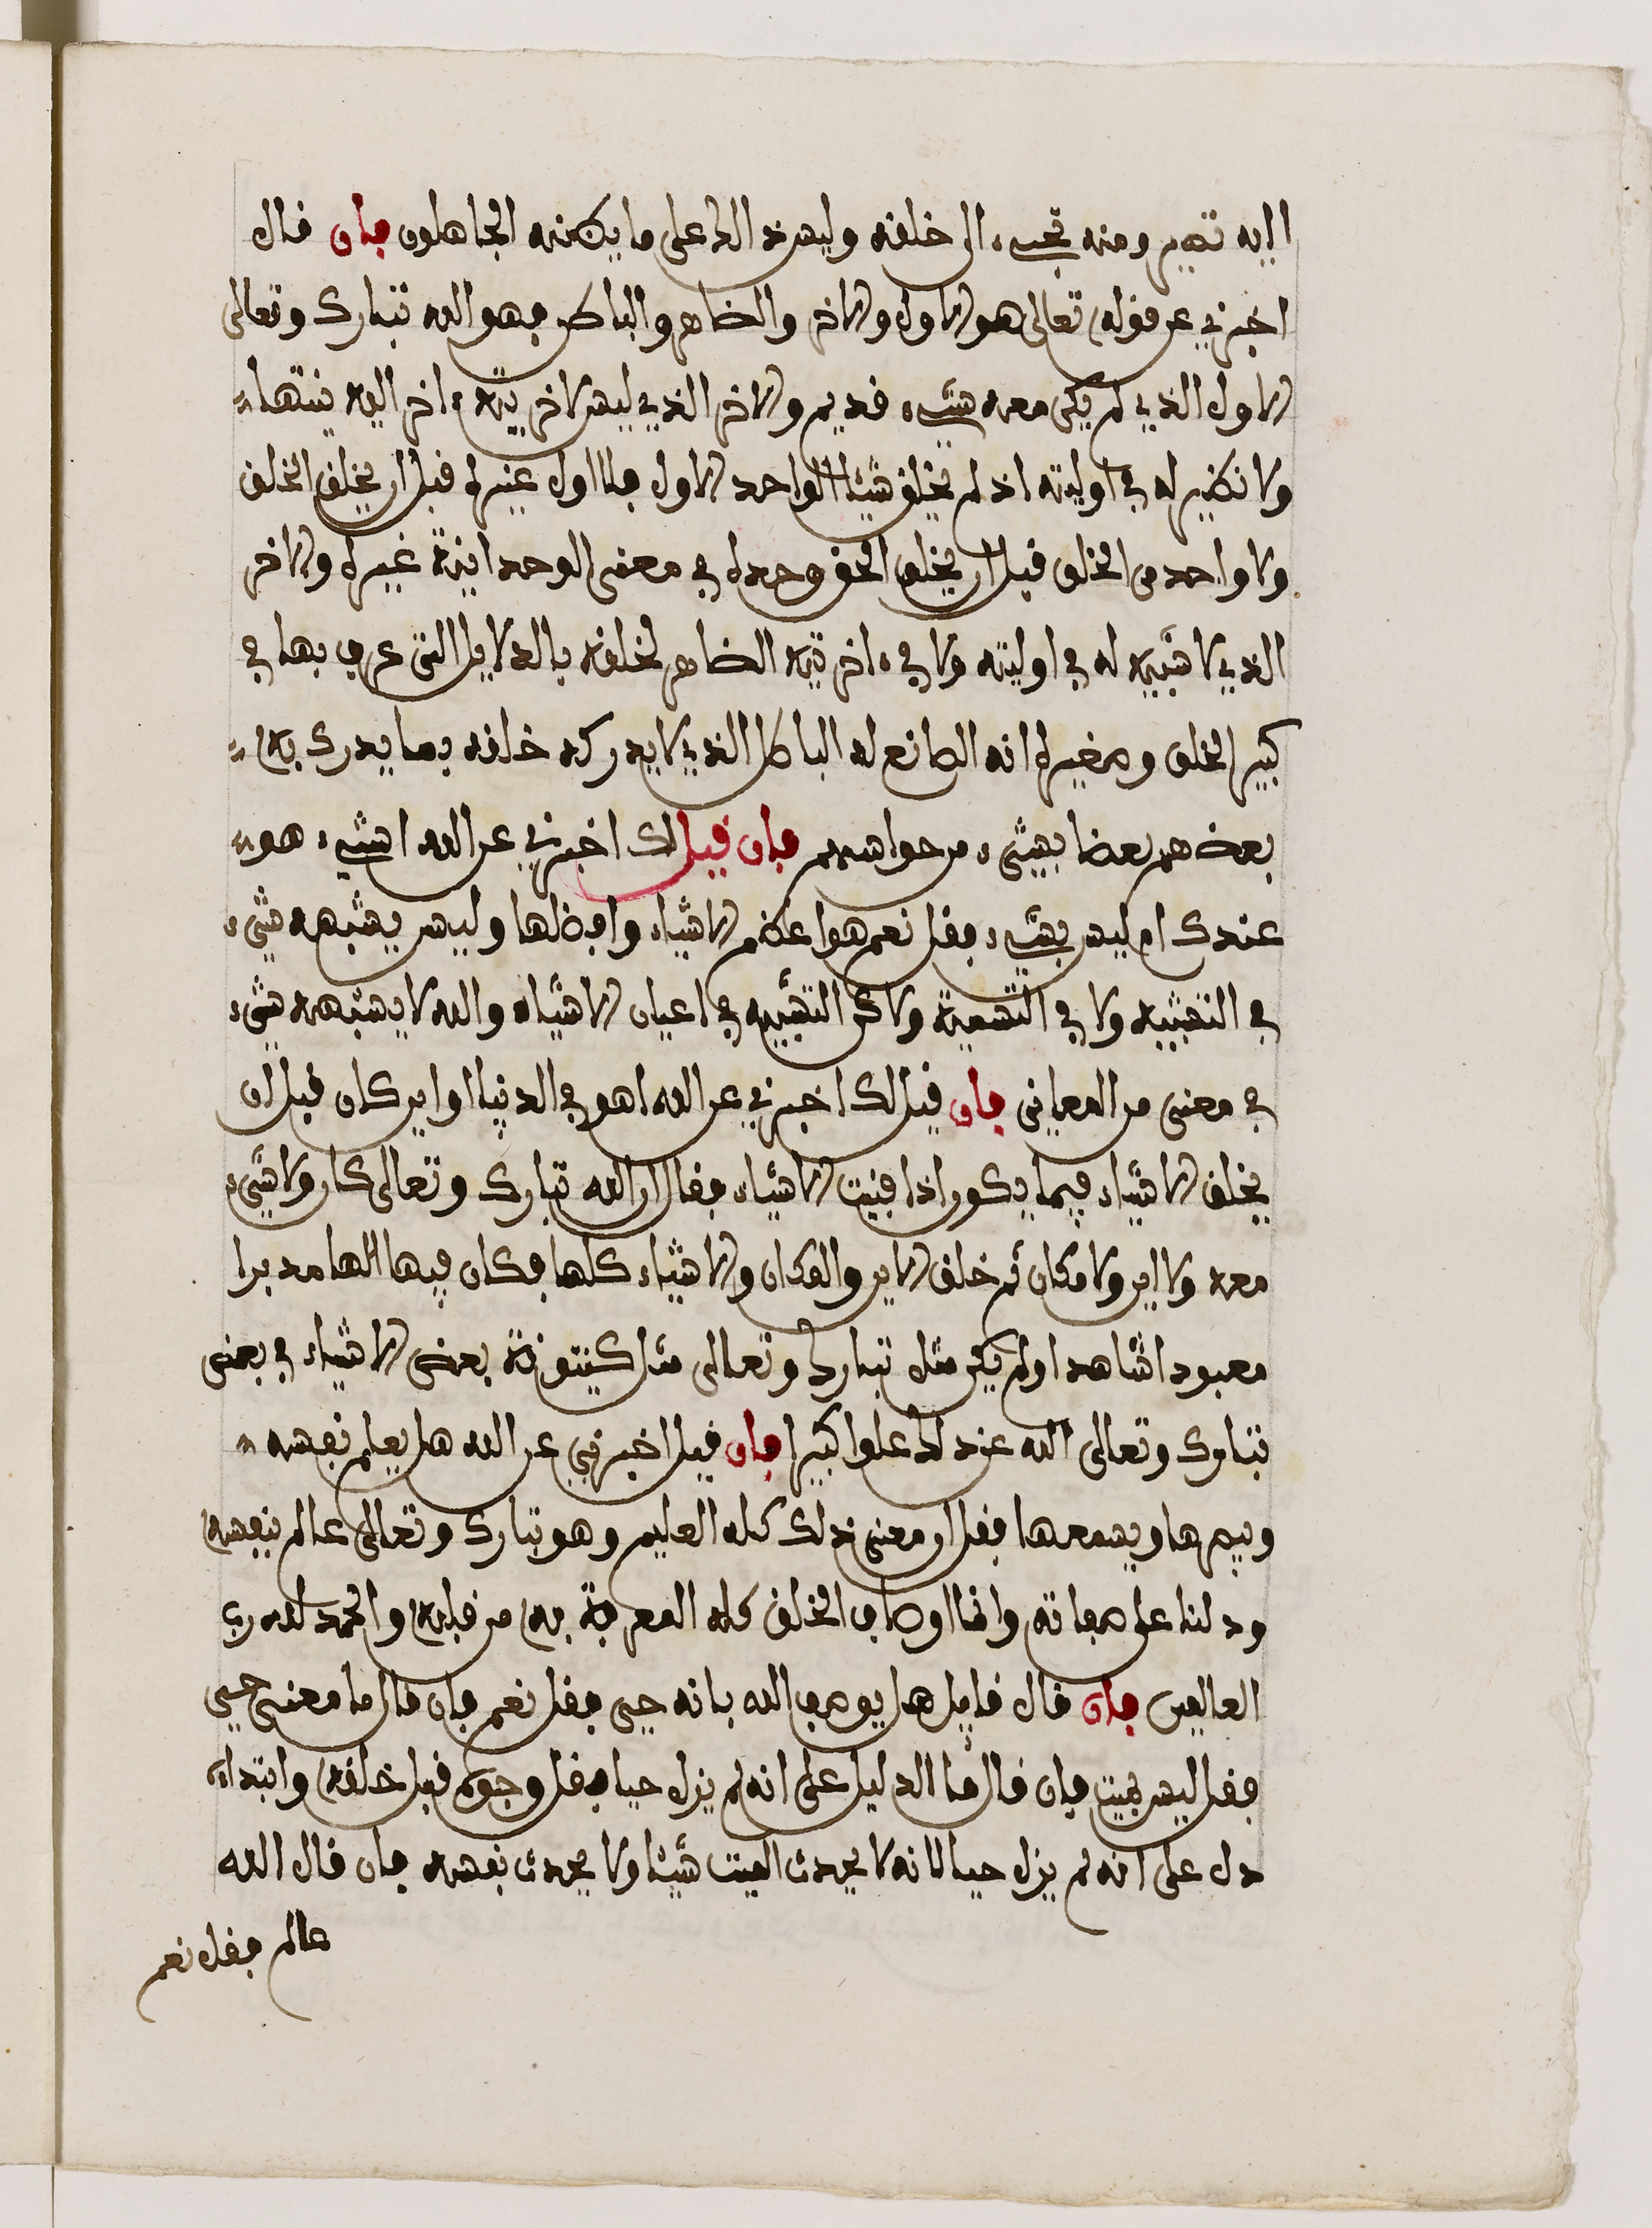 اليه تصير ومنه تجيء الى خلقه وليس ذالك على ما يظنه الجاهلون فان قال
اخبرني عن قوله تعالى هو الاول والاخر والظاهر والباطن فهو الله تبارك وتعالى
الاول الذي لم يكن معه شيء قديم والاخر الذي ليس لاخريته ءاخر اليه ينتهاء
ولا نظير له في اوليته اذ لم يخلق شيئا الواحد الاول فلا اول غيره قبل ان يخلق الخلق
ولا واحد من الخلق قبل ان يخلق الحق وحده في معنى الوحدانية غيره والاخر
الذي لا شبيه له في اوليته ولا في ءاخريته الظاهر لخلقه بالدلايل التي عرف بها في
كبير الخلق وصغيره انه الصانع له الباطن الذي لا يدركه خلقه بما يدرك به
بعضهم بعضا بشيء من حواسهم فان قيل لك اخبرني عن الله اشيء هو
عندك ام ليس بشيء فقل نعم هو اعظم الاشياء وافضلها وليس يشبهه شيء
في التشبيه ولا في التسمية ولاكن التشبيه في اعيان الاشياء والله لا يشبهه شيء
في معنى من المعاني فان قيل لك اخبرني عن الله اهو في الدنيا او اين كان قبل ان
يخلق الاشياء فيما يكون اذا فنيت الاشياء فقال ان الله تبارك وتعالى كان ولا شيء
معه ولا اين ولا مكان ثم خلق الاين والمكان والاشياء كلها فكان فيها الها مدبرا
معبودا شاهدا ولم يكن مثله تبارك وتعالى مثل كينونة بعض الاشياء في بعض
تبارك وتعالى الله عن ذلك علوا كبيرا فان قيل اخبرني عن الله هل يعلم نفسه
ويبصرها ويسمعها فقل ان معنى ذلك كله العليم وهو تبارك وتعالى عالم بنفسه
ودلنا على صفاته وانما اوصاف الخلق كله المعرفة به من قبله والحمد لله رب
العالمين فان قال قايل هل يوصف الله بانه حيى فقل نعم فان قال ما معنى حيى
فقل ليس بميت فان قال ما الدليل على انه لم يزل حيا فقل وجوده قبل خلقه وابتداءه
دل على انه لم يزل حيا لانه لا يحدث الميت شيئا ولا يحدث نفسه فان قال الله
عالم فقل نعم